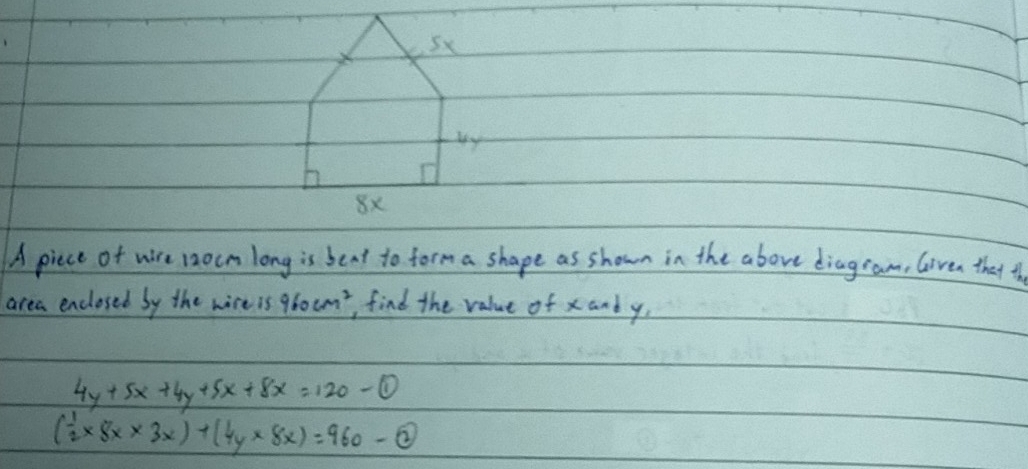 5x
4y
8x
A piece of wire 120cm long is bent to form a shape as shown in the above diagram. Given that the
area enclosed by the wire is 960cm², find the value of x and y.
4y + 5x + 4y + 5x + 8x = 120 - ①
(½ × 8x × 3x) + (4y × 8x) = 960 - ②